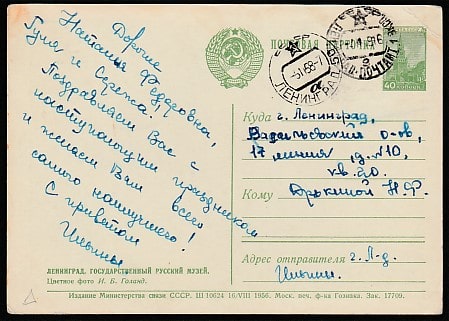 Дорогие
Наталия Федоровна,
Гуля и Сережа!
Поздравляем Вас с
наступающим праздником
и желаем Вам всего
самого наилучшего!
С приветом
Ильины
ПОЧТОВАЯ КАРТОЧКА
ЛЕНИНГРАД
40
Куда г. Ленинград,
Васильевский о-ов,
17 линия д. №10,
кв. 20.
Кому
Н.Ф.
Адрес отправителя г. Л-д.
Ильины
ЛЕНИНГРАД. ГОСУДАРСТВЕННЫЙ РУССКИЙ МУЗЕЙ.
Цветное фото И. Б. Голанд.
Издание Министерства связи СССР. Ш 10624 16/VIII 1956. Моск. печ. ф-ка Гознака. Зак. 17709.